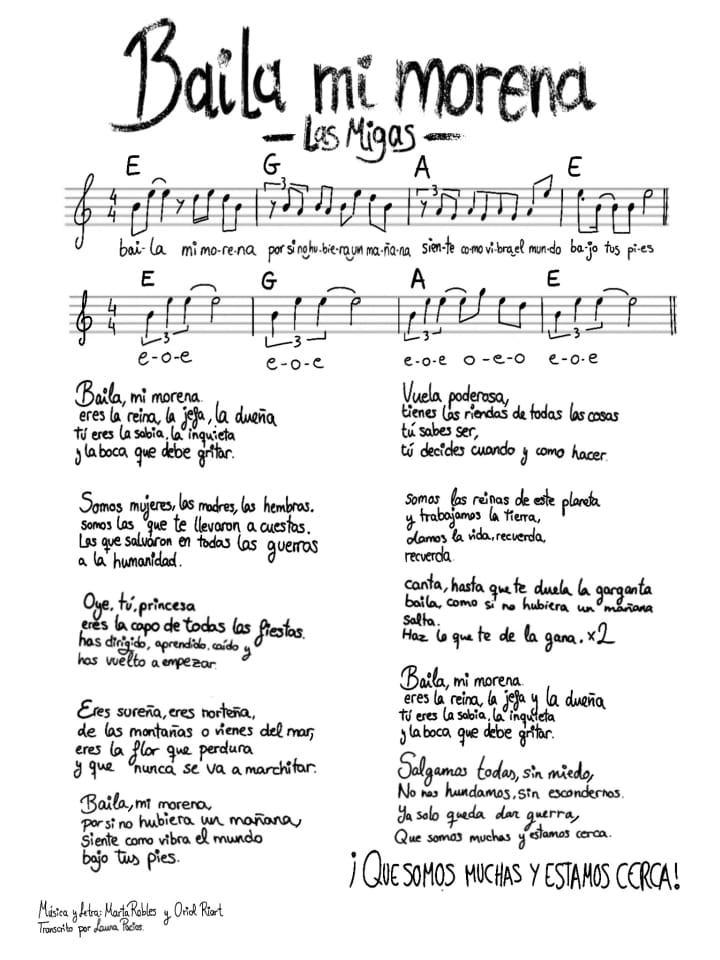 Baila mi morena
- Las Migas -
E G A E
4/4
3 3
bai-la mi mo-re-na por si no hu-bie-ra un ma-ña-na sien-te como vi-bra el mun-do ba-jo tus pi-es
E G A E
4/4
3 3 3 3
e-o-e e-o-e e-o-e o-e-o e-o-e
Baila, mi morena.
eres la reina, la jefa, la dueña
tú eres la sabia, la inquieta
y la boca que debe gritar.
Somos mujeres, las madres, las hembras.
somos las que te llevaron a cuestas.
Las que salvaron en todas las guerras
a la humanidad.
Oye, tú, princesa
eres la capo de todas las fiestas.
has dirigido, aprendido, caído y
has vuelto a empezar.
Eres sureña, eres norteña,
de las montañas o vienes del mar,
eres la flor que perdura
y que nunca se va a marchitar.
Baila, mi morena,
por si no hubiera un mañana,
siente como vibra el mundo
bajo tus pies.
Vuela poderosa,
tienes las riendas de todas las cosas
tú sabes ser,
tú decides cuando y como hacer.
somos las reinas de este planeta
y trabajamos la tierra,
damos la vida, recuerda,
recuerda.
canta, hasta que te duela la garganta
baila, como si no hubiera un mañana
salta.
Haz lo que te de la gana. x2
Baila, mi morena.
eres la reina, la jefa y la dueña
tú eres la sabia, la inquieta
y la boca que debe gritar.
Salgamos todas, sin miedo,
No nos hundamos, sin escondernos.
Ya solo queda dar guerra,
Que somos muchas y estamos cerca.
¡QUE SOMOS MUCHAS Y ESTAMOS CERCA!
Música y Letra: Marta Robles y Oriol Riart
Transcrito por Laura Pacios.